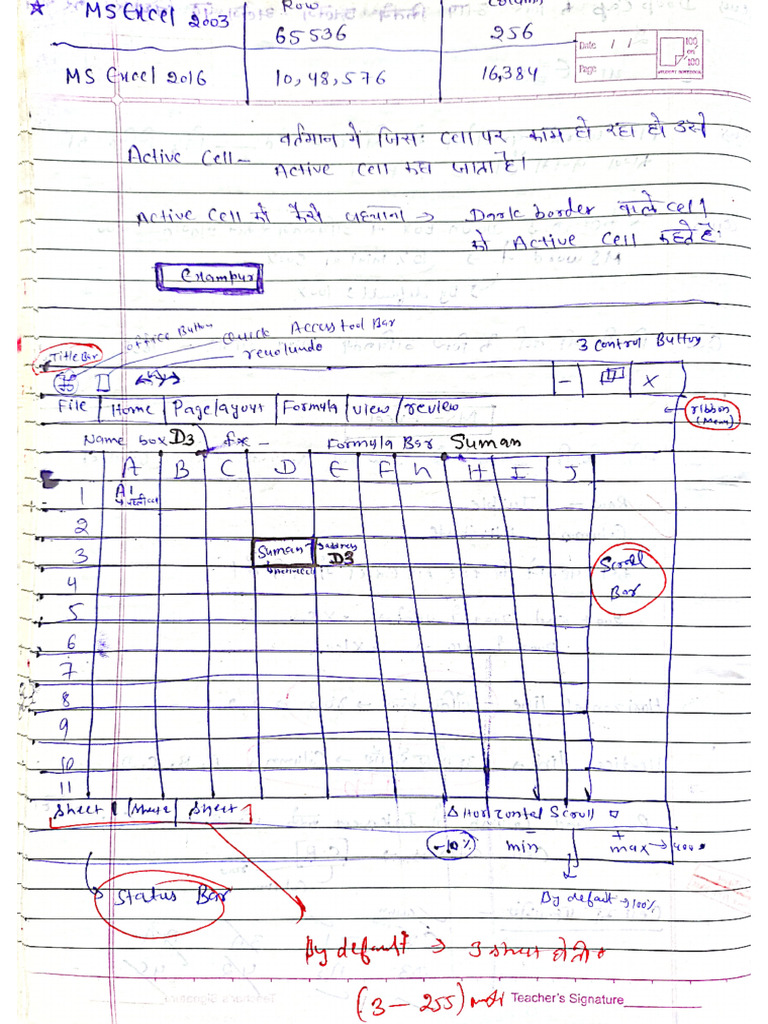 Row Column
★ MS Excel 2003 65536 256
Date / /
Page
100 on 100
STUDENT NOTEBOOK
MS Excel 2016 10,48,576 16,384
Active Cell- वर्तमान में जिस Cell पर काम हो रहा हो उसे
Active Cell कहा जाता है।
Active Cell को कैसे पहचाना → Dark border वाले Cell
को Active Cell कहते हैं।
office Button
Quick Access tool Bar
3 Control Button
Title Bar
- X
File Home Page layout Formula view review
← ribbon (Menu)
Name box D3 fx - Formula Bar Suman
A B C D E F H I J
1 A1
2
3 Suman → address D3
Active cell
Scroll
Bar
4
5
6
7
8
9
10
11
Sheet Sheet Sheet
Horizontal Scroll
-10% min + max → 400
Status Bar
By default → 100%
By default → 3
(3 - 255) Teacher's Signature